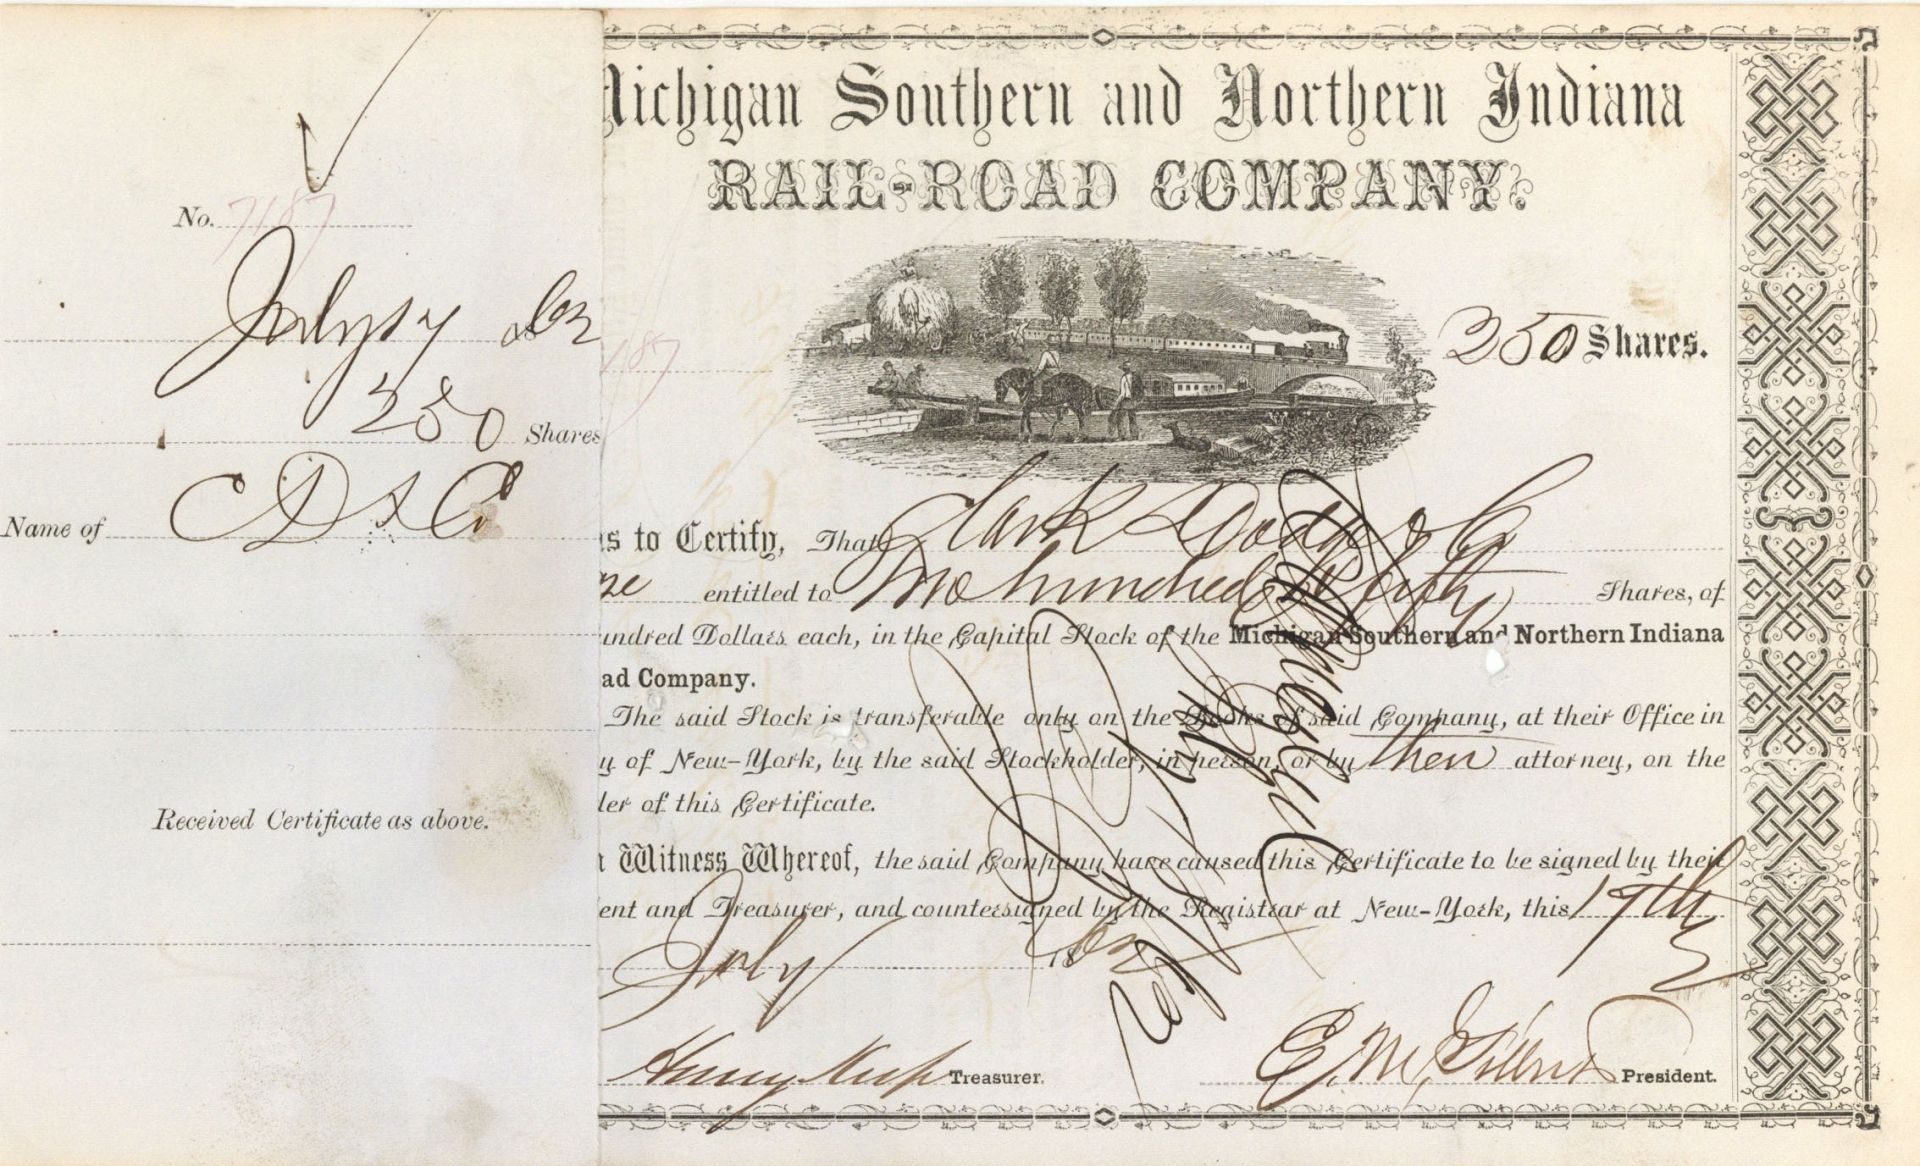 No. 7187
July 17 1862
250 Shares
Name of C D & Co
Received Certificate as above.
Michigan Southern and Northern Indiana
RAIL-ROAD COMPANY.
187
250 Shares.
is to Certify, That Clark Dodge & Co
entitled to Two hundred & fifty Shares, of
undred Dollars each, in the Capital Stock of the Michigan Southern and Northern Indiana
ad Company.
The said Stock is transferable only on the Books of said Company, at their Office in
y of New-York, by the said Stockholder, in person, or by their attorney, on the
der of this Certificate.
n Witness Whereof, the said Company have caused this Certificate to be signed by their
ent and Treasurer, and countersigned by the Registrar at New-York, this 17th
July 1862
Henry Keep Treasurer.
E. M. Gilbert President.